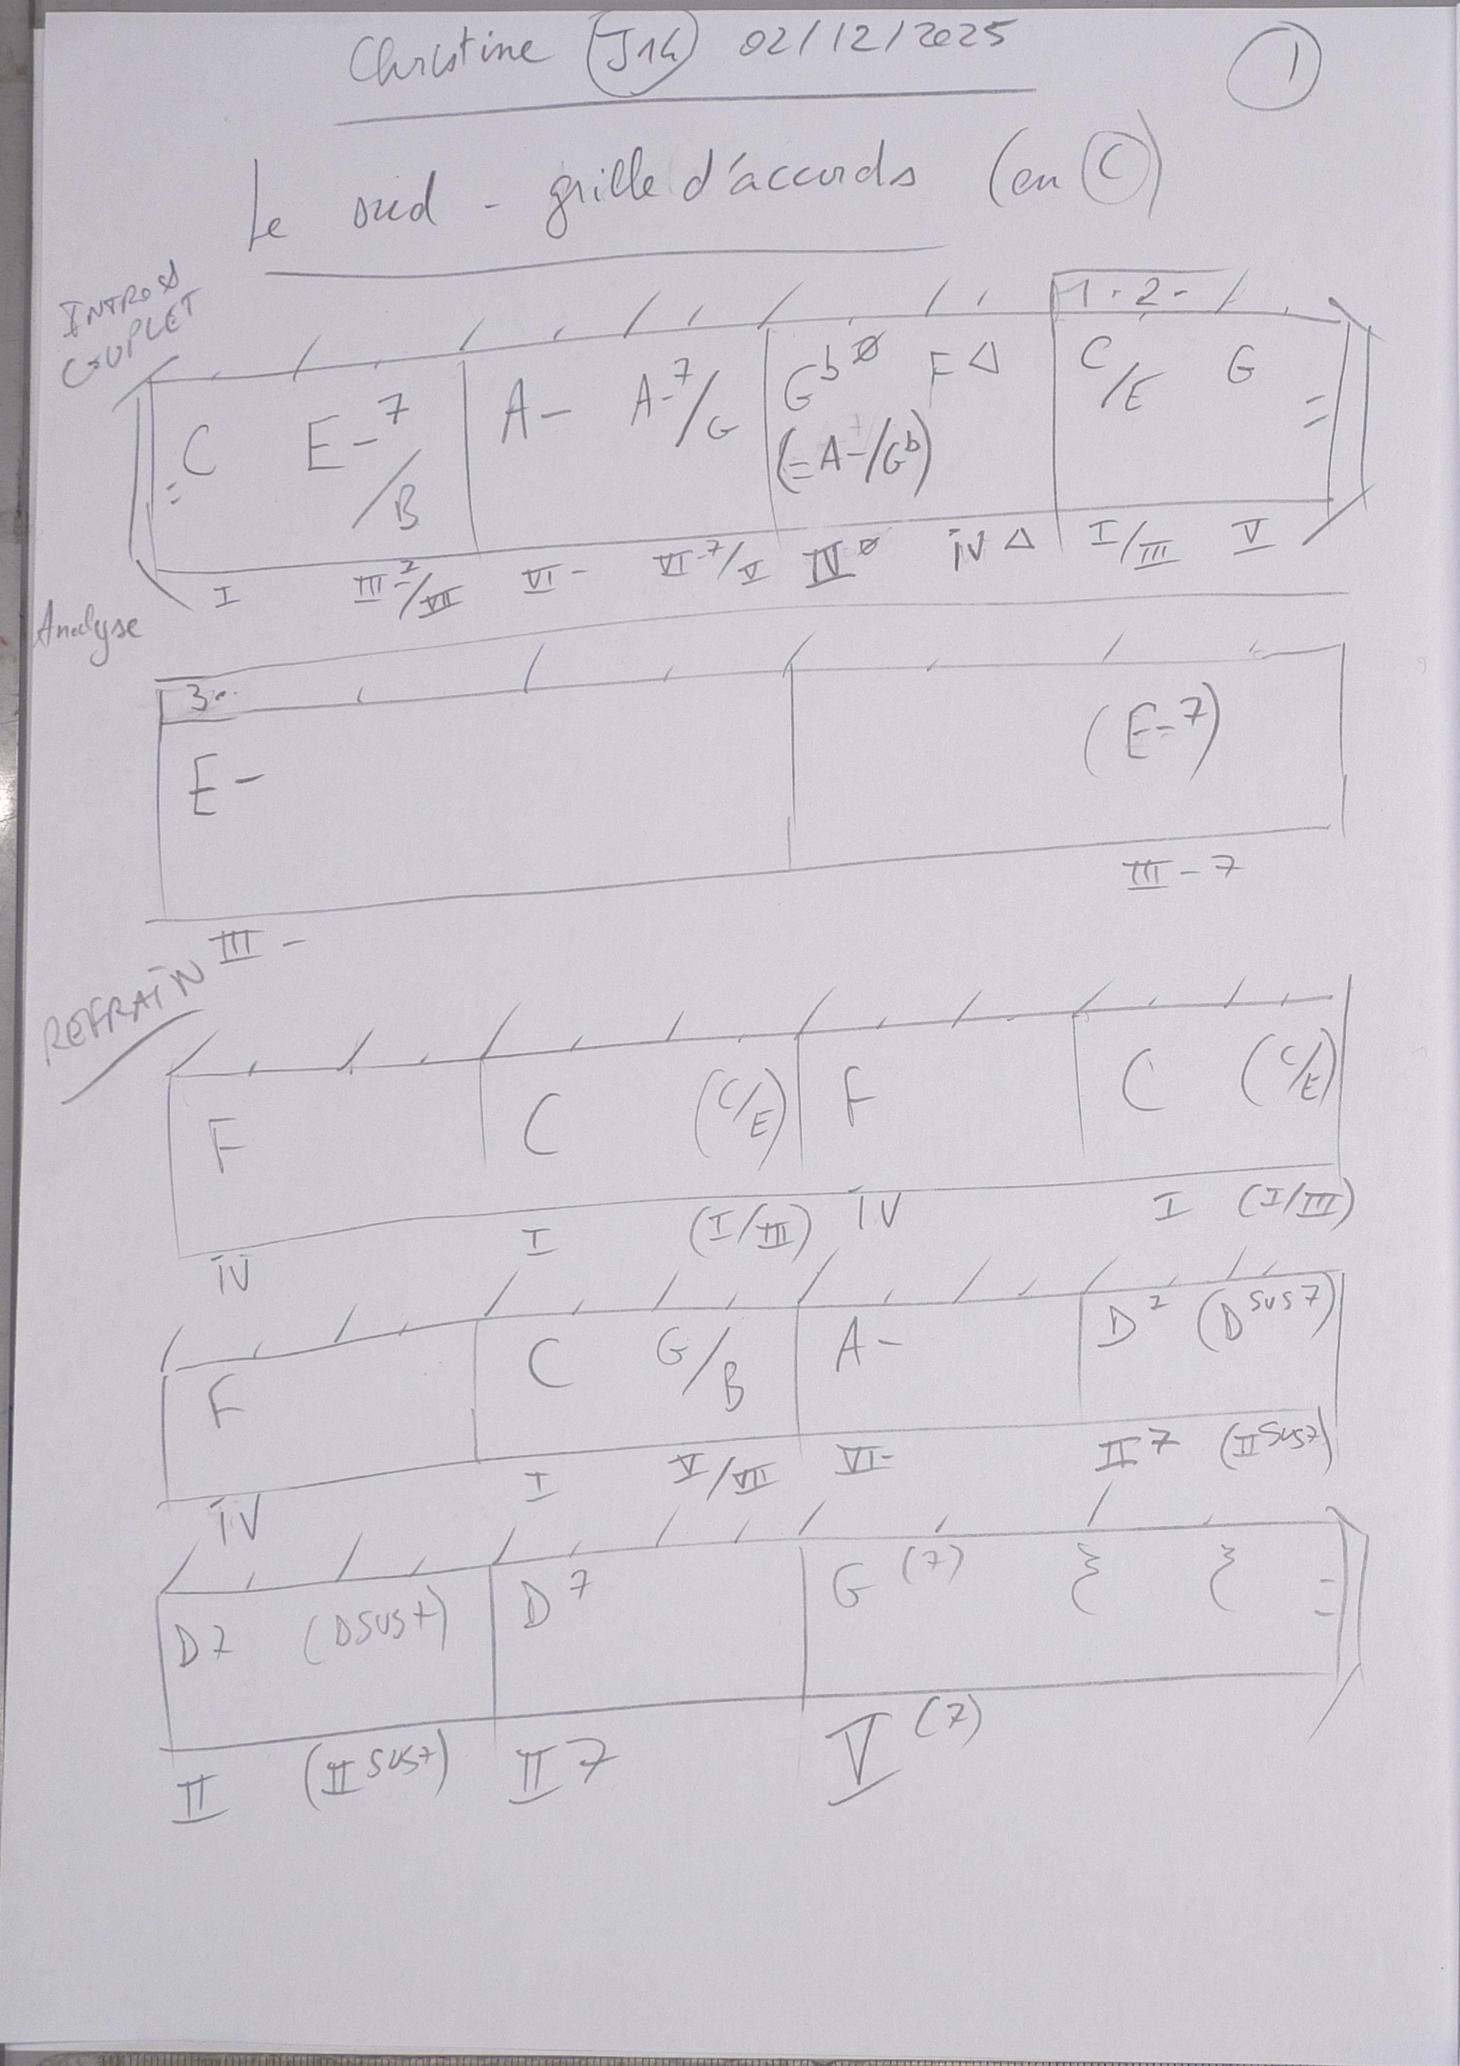 Christine (J14) 02/12/2025
1
Le sud - grille d'accords (en C)
INTRO &
COUPLET
1. 2.
C E-7/B A- A-7/G Gbø F△ C/E G
(=A-/Gb)
I III-7/VII VI- VI-7/V IVø IV△ I/III V
Analyse
3.
E- (E-7)
III- III-7
REFRAIN
F C (C/E) F C (C/E)
IV I (I/III) IV I (I/III)
F C G/B A- D7 (Dsus7)
IV I V/VII VI- II7 (IIsus7)
D7 (Dsus7) D7 G(7)
II (IIsus7) II7 V(7)